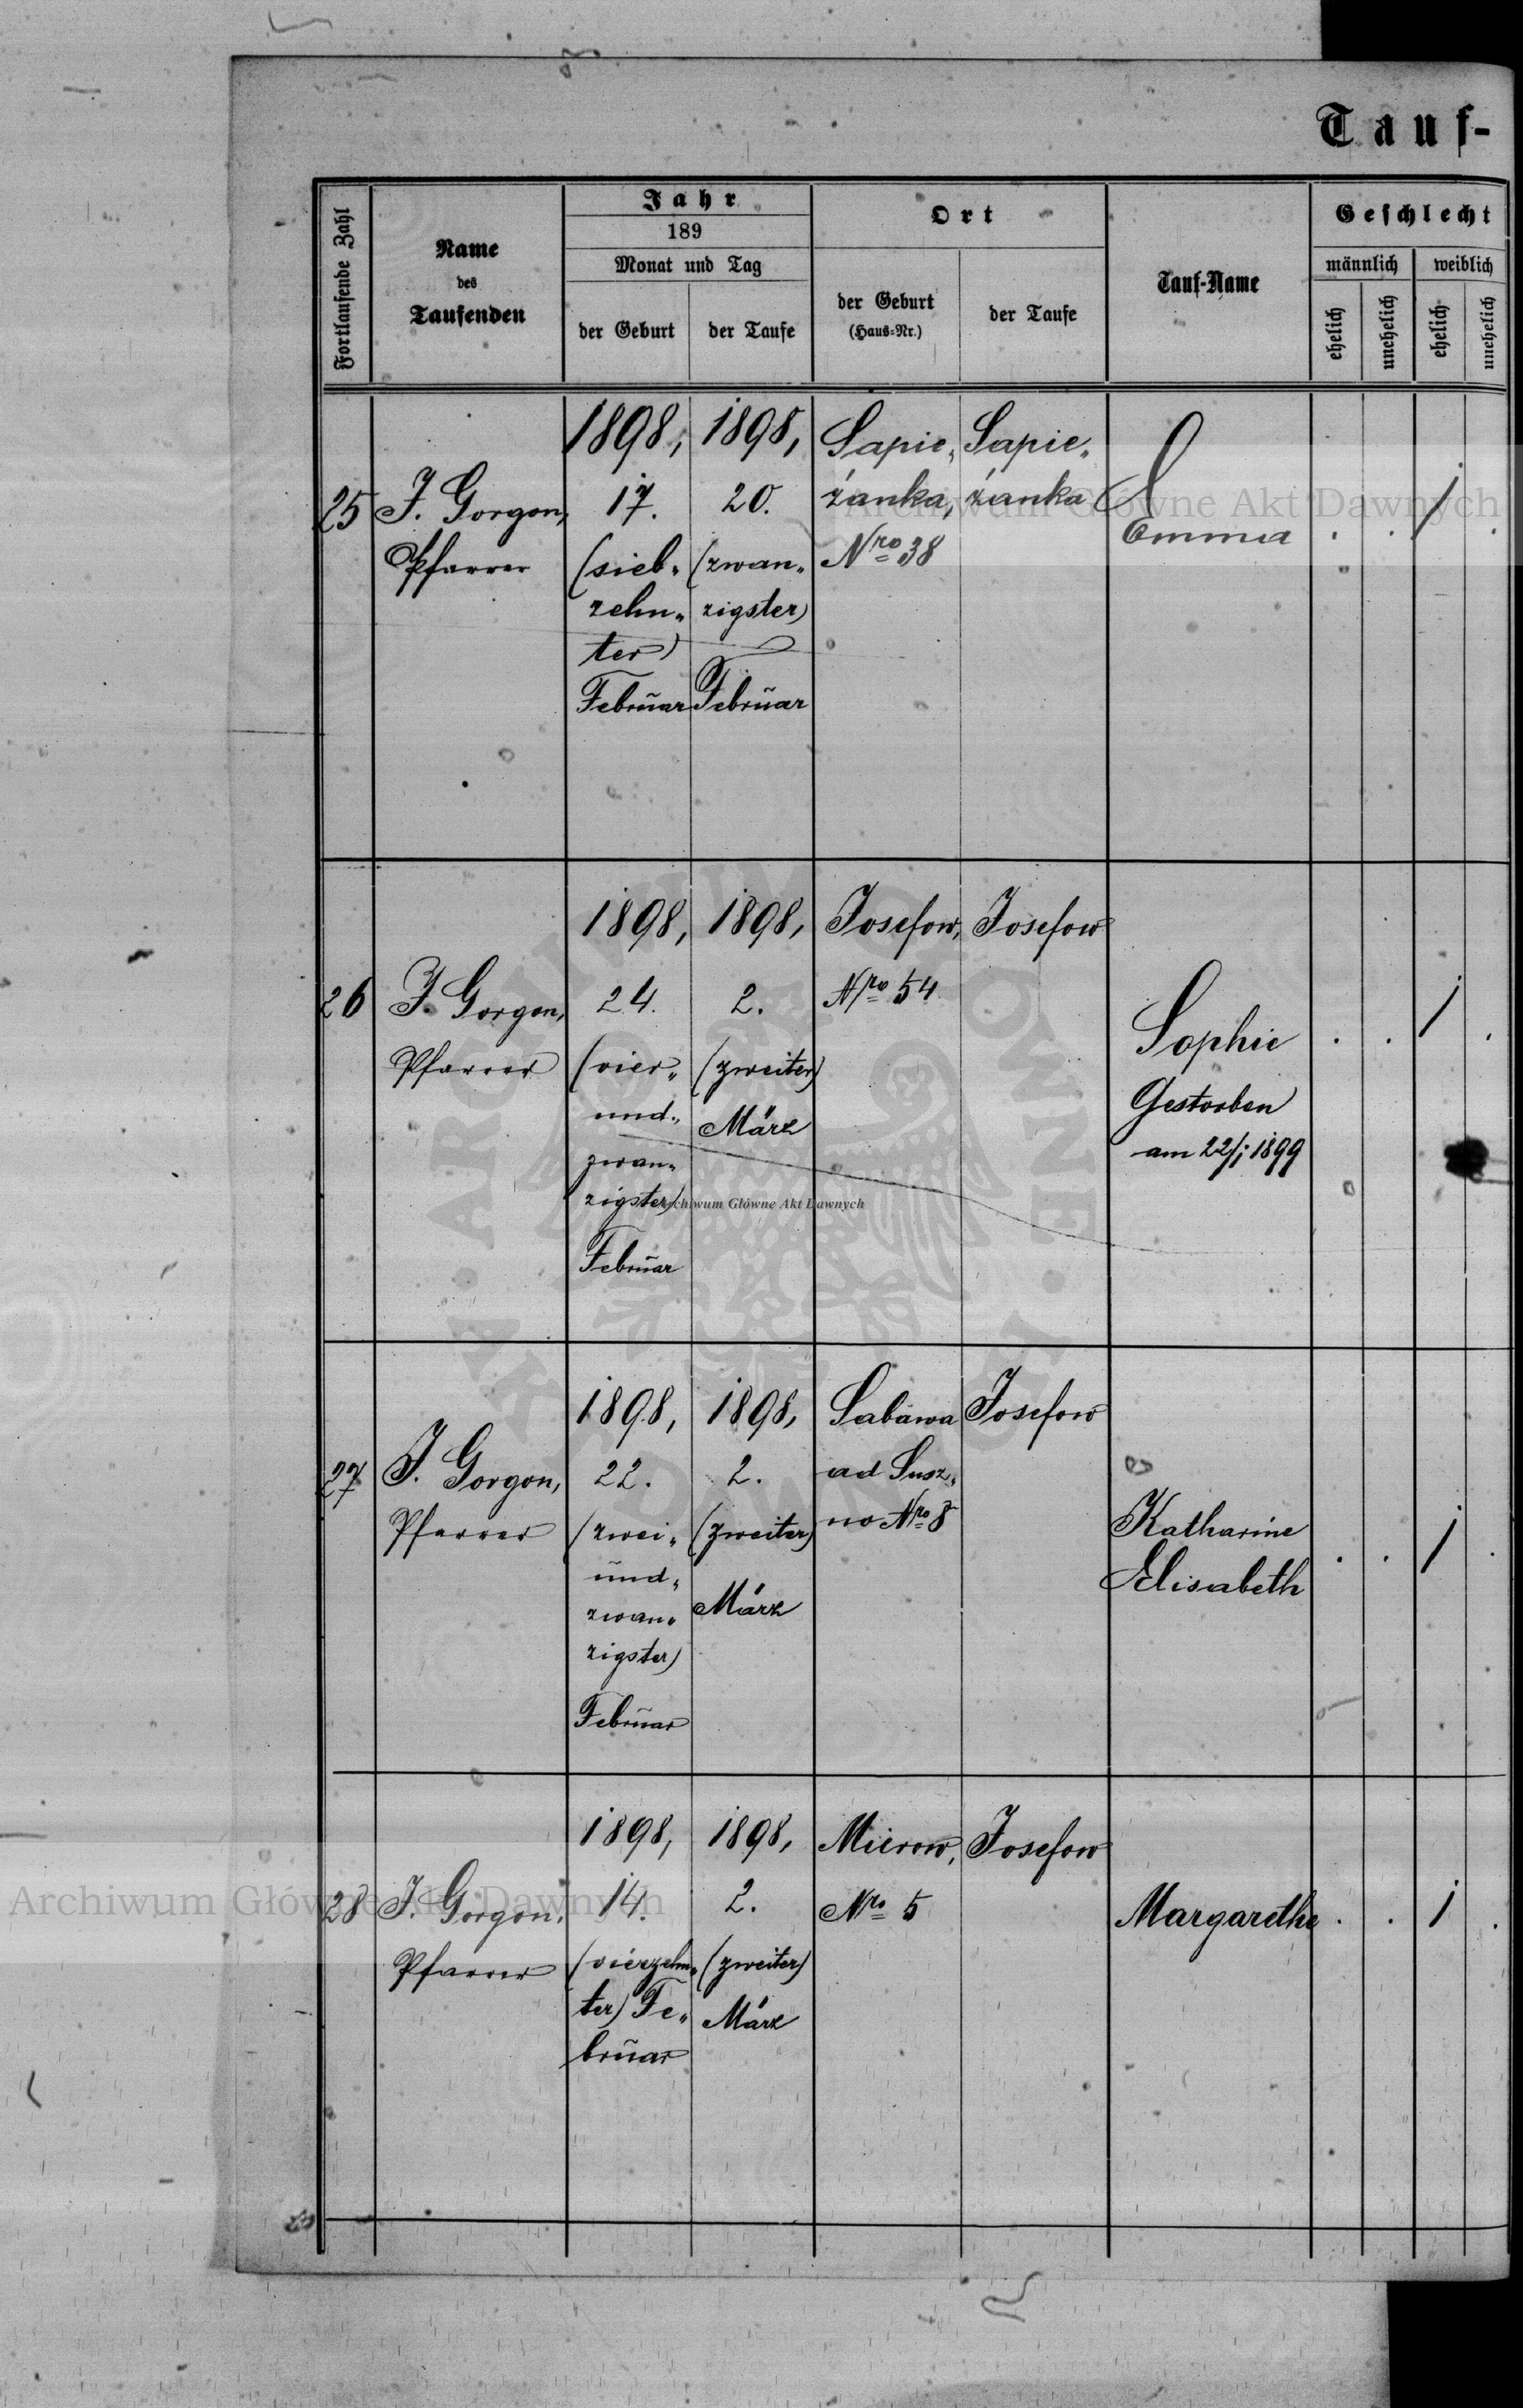 Tauf-
Fortlaufende Zahl
Name
des
Taufenden
Jahr
189
Monat und Tag
der Geburt
der Taufe
Ort
der Geburt
(Haus-Nr.)
der Taufe
Tauf-Name
Geschlecht
männlich
weiblich
ehelich
unehelich
ehelich
unehelich
25
J. Gorgon,
Pfarrer
1898,
17.
(sieb„
zehn„
ter)
Februar
1898,
20.
(zwan„
zigster)
Februar
Sapie„
żanka,
Nro 38
Sapie„
żanka
Emma
. . 1 .
26
J. Gorgon,
Pfarrer
1898,
24.
(vier„
und„
zwan„
zigster)
Februar
1898,
2.
(zweiter)
März
Josefow,
Nro 54
Josefow
Sophie
Gestorben
am 22/1 1899
. . 1 .
27
J. Gorgon,
Pfarrer
1898,
22.
(zwei„
und„
zwan„
zigster)
Februar
1898,
2.
(zweiter)
März
Sabawa
ad Susz„
no Nro 8
Josefow
Katharine
Elisabeth
. . 1 .
28
J. Gorgon,
Pfarrer
1898,
14.
(vierzehn„
ter) Fe„
bruar
1898,
2.
(zweiter)
März
Mierow,
Nro 5
Josefow
Margarethe
. . 1 .
Archiwum Główne Akt Dawnych
Archiwum Główne Akt Dawnych
Archiwum Główne Akt Dawnych
ARCHIWUM GŁÓWNE AKT DAWNYCH